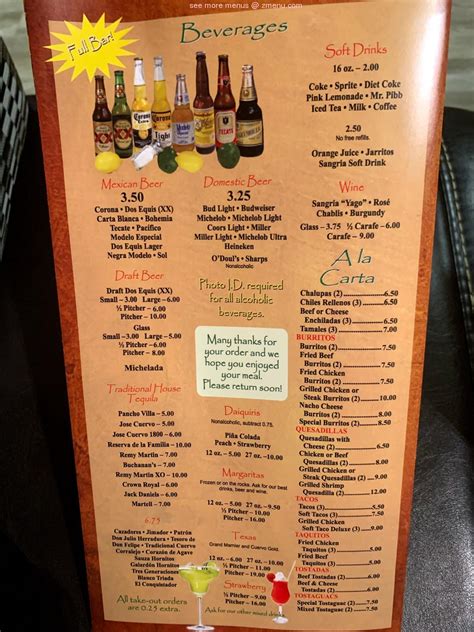 see more menus @ zmenu.com
Full Bar!
Beverages
Mexican Beer
3.50
Corona • Dos Equis (XX)
Carta Blanca • Bohemia
Tecate • Pacifico
Modelo Especial
Dos Equis Lager
Negra Modelo • Sol
Draft Beer
Draft Dos Equis (XX)
Small – 3.00 Large – 6.00
½ Pitcher – 6.00
Pitcher – 10.00
Glass
Small – 2.25 Large – 4.00
½ Pitcher – 5.00
Pitcher – 8.50
Michelada
Traditional House
Tequila
Pancho Villa – 5.00
Jose Cuervo – 5.00
Jose Cuervo 1800 – 6.00
Reserva de la Familia – 10.00
Remy Martin – 7.00
Buchanan's – 7.00
Remy Martin XO – 10.00
Crown Royal – 6.00
Jack Daniels – 6.00
Martell – 6.00
6.75
Cazadores • Jimador • Patrón
Don Julio Herradura • Tesoro de
Don Felipe • Tradicional Cuervo
Corralejo • Corazón de Agave
Sauza Hornitos
Galardón Hornitos
Tres Generaciones
Blanco Triada
El Conquistador
All take-out orders
are 0.25 extra.
Domestic Beer
3.25
Bud Light • Budweiser
Michelob • Michelob Light
Coors Light • Miller
Miller Light • Michelob Ultra
Heineken
O'Doul's • Sharps
Nonalcoholic
Photo I.D. required
for all alcoholic
beverages.
Many thanks for
your order and we
hope you enjoyed
your meal.
Please return soon!
Daiquiris
Nonalcoholic, subtract 0.75.
Piña Colada
Peach • Strawberry
12 oz. – 5.25 27 oz. – 9.50
Margaritas
Frozen or on the rocks. Ask for our best
drinks, beer and wine.
12 oz. – 5.00 27 oz. – 9.50
½ Pitcher – 10.00
Pitcher – 16.00
Texas
Grand Marnier and Cuervo Gold.
½ Pitcher – 12.00
Pitcher – 18.00
Strawberry
½ Pitcher – 12.00
Pitcher – 18.00
Ask for our other mixed drinks
Soft Drinks
16 oz. – 2.00
Coke • Sprite • Diet Coke
Pink Lemonade • Mr. Pibb
Iced Tea • Milk • Coffee
2.50
No free refills.
Orange Juice • Jarritos
Sangría Soft Drink
Wine
Sangría "Yago" • Rosé
Chablis • Burgundy
Glass – 3.75 ½ Carafe – 6.00
Carafe – 9.00
A la
Carta
Chalupas (2)
Chiles Rellenos (3)
Beef or Cheese
Enchiladas (3)
Tamales (3)
BURRITOS
Burritos (2)
Fried Beef
Burritos (2)
Fried Chicken
Burritos (2)
Grilled Chicken or
Steak Burritos (2)
Nacho Cheese
Burritos (2)
Special Burritos (2)
QUESADILLAS
Quesadillas with
Cheese (2)
Chicken or Beef
Quesadillas (2)
Grilled Chicken or
Steak Quesadillas (2)
Grilled Shrimp
Quesadillas (2)
TACOS
Tacos (3)
Soft Tacos (3)
Grilled Chicken
Soft Taco Deluxe (3)
TAQUITOS
Fried Chicken
Taquitos (3)
Fried Beef
Taquitos (3)
TOSTADAS
Beef Tostadas (2)
Beef & Cheese
Tostadas (2)
TOSTAGUACS
Special Tostaguac (2)
Mixed Tostaguac (2)